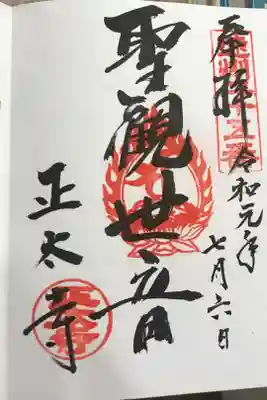 奉拝
令和元年
七月六日
聖観世音
正太寺